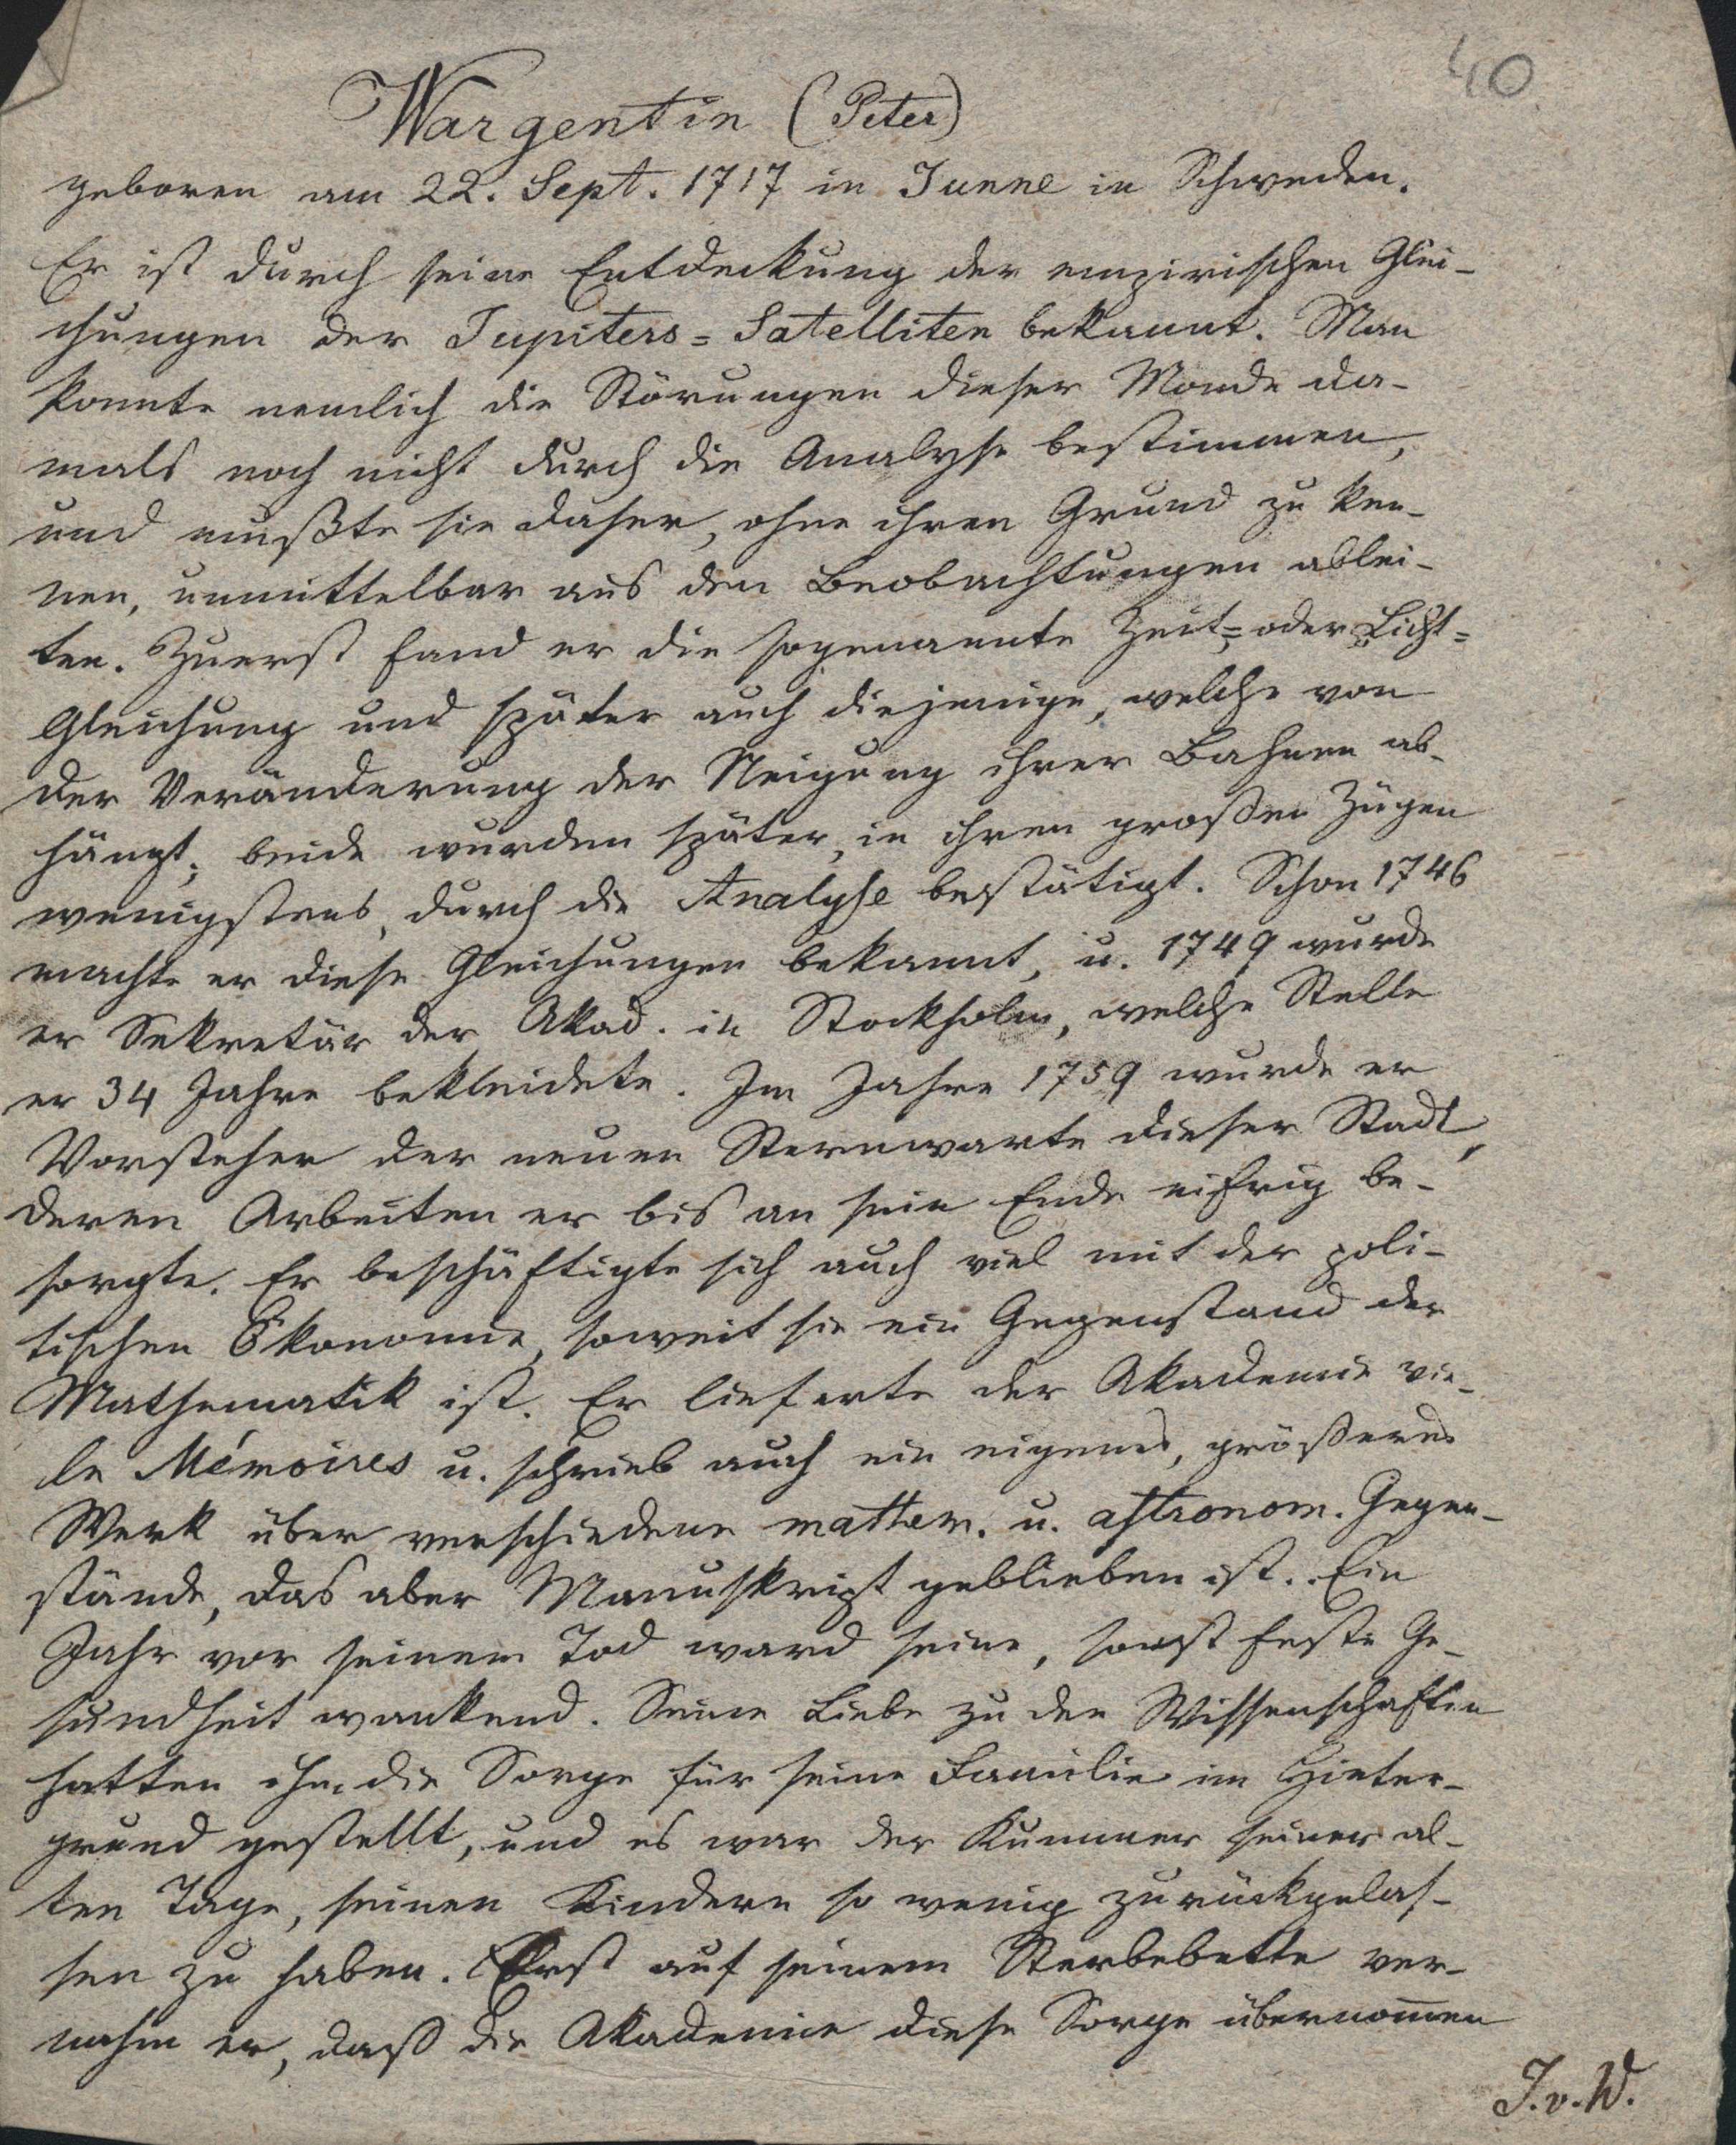 40
Wargentin (Peter)
geboren am 22. Sept. 1717 in Sunne in Schweden.
Er ist durch seine Entdeckung der empirischen Glei-
chungen der Jupiters=Satelliten bekannt. Man
konnte nemlich die Störungen dieser Monde da-
mals noch nicht durch die Analyse bestimmen,
und mußte sie daher, ohne ihren Grund zu ken-
nen, unmittelbar aus den Beobachtungen ablei-
ten. Zuerst fand er die sogenannte Zeit= oder Licht=
Gleichung und später auch diejenige, welche von
der Veränderung der Neigung ihrer Bahnen ab-
hängt; beide wurden später, in ihren großen Zügen
wenigstens, durch die Analyse bestätigt. Schon 1746
machte er diese Gleichungen bekannt, u. 1749 wurde
er Sekretär der Akad. in Stockholm, welche Stelle
er 34 Jahre bekleidete. Im Jahre 1759 wurde er
Vorsteher der neuen Sternwarte dieser Stadt,
deren Arbeiten er bis an sein Ende eifrig be-
sorgte. Er beschäftigte sich auch viel mit der poli-
tischen Ökonomie, soweit sie ein Gegenstand der
Mathematik ist. Er lieferte der Akademie vie-
le Mémoires u. schrieb auch ein eigenes, größeres
Werk über verschiedene mathem. u. astronom. Gegen-
stände, das aber Manuskript geblieben ist. Ein
Jahr vor seinem Tod ward seine, sonst feste Ge-
sundheit wankend. Seine Liebe zu den Wissenschaften
hatten ihm die Sorge für seine Familie im Hinter-
grund gestellt, und es war der Kummer seiner al-
ten Tage, seinen Kindern so wenig zurückgelas-
sen zu haben. Erst auf seinem Sterbebette ver-
nahm er, daß die Akademie diese Sorge übernom̅en
J. v. W.